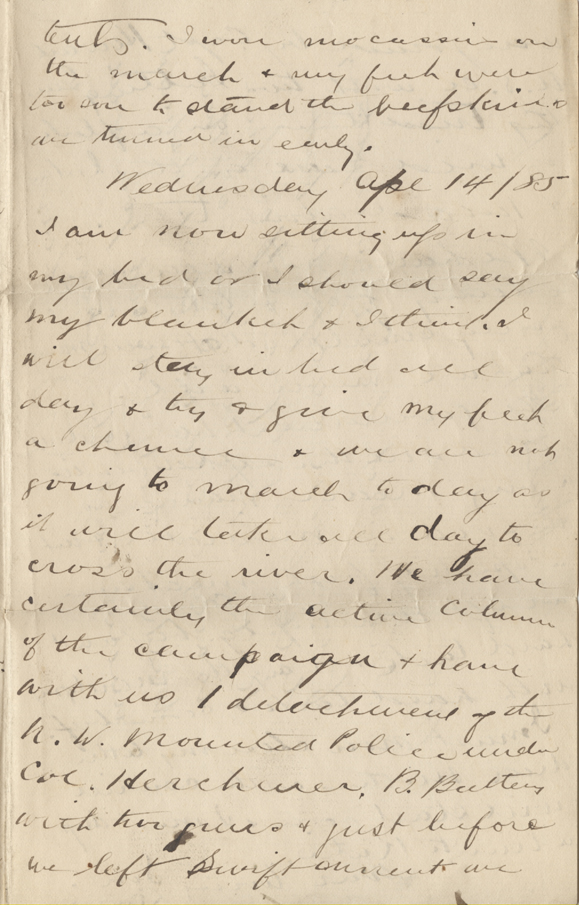 tents. I wore mocassin on
the march & my feet were
too sore to stand the beefskins
we turned in early.
Wednesday Apl 14/85
I am now sitting up in
my bed or I should say
my blanket & I think I
will stay in bed all
day & try & give my feet
a chance & we are not
going to march today as
it will take all day to
cross the river. We have
certainly the active column
of the campaign & have
with us 1 detachment of the
N. W. Mounted Police under
Col. Herchmer, B. Battery
with two guns & just before
we left Swift current we